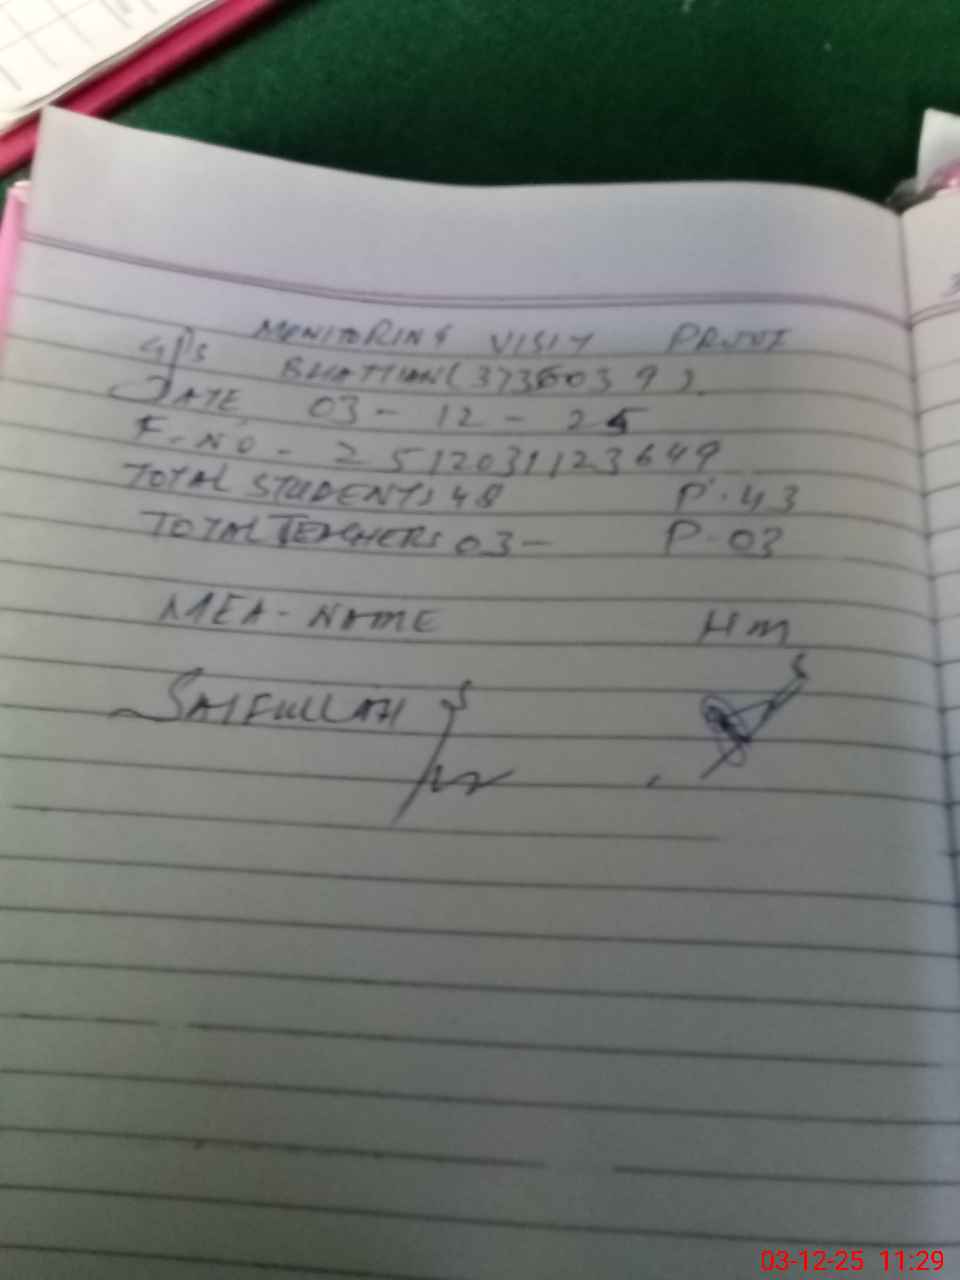 MONITORING VISIT PROOF
GPS BHATTIAN (3736039).
DATE 03 - 12 - 25
F. NO - 2512031123649
TOTAL STUDENTS 48 P. 43
TOTAL TEACHERS 03 - P - 03
MEA - NAME HM
SAIFULLAH
03-12-25 11:29